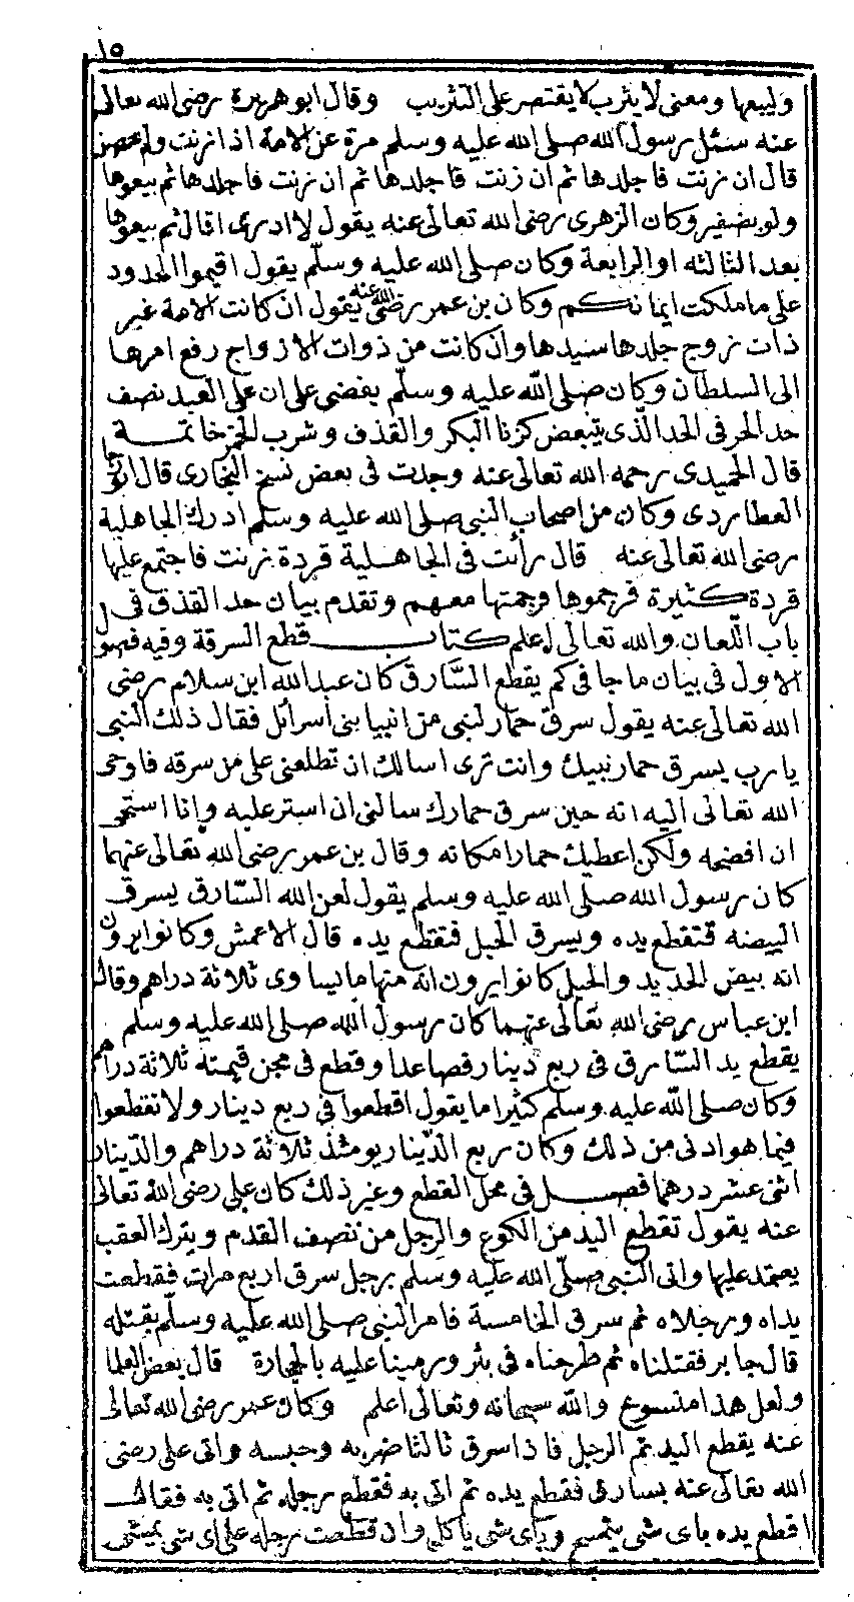 ١٥
وليبعها ومعنى لا يثرب لا يقتصر على التثريب وقال ابو هريرة رضى الله تعالى
عنه سئل رسول الله صلى الله عليه وسلم مرة عن الامة اذا زنت ولم تحصن
قال ان زنت فاجلدها ثم ان زنت فاجلدها ثم ان زنت فاجلدها ثم بيعوها
ولو بضفير وكان الزهرى رضى الله تعالى عنه يقول لا ادرى اقال ثم بيعوها
بعد الثالثه او الرابعة وكان صلى الله عليه وسلم يقول اقيموا الحدود
على ما ملكت ايمانكم وكان بن عمر رضى الله عنه يقول ان كانت الامة غير
ذات زوج جلدها سيدها وان كانت من ذوات الازواج رفع امرها
الى السلطان وكان صلى الله عليه وسلم يقضى على ان على العبد نصف
حد الحر فى الحد الذى يتبعض كزنا البكر والقذف وشرب الخمر خاتمة
قال الحميدى رحمه الله تعالى عنه وجدت فى بعض نسخ البخارى قال ابو رجا
العطاردى وكان من اصحاب النبى صلى الله عليه وسلم ادرك الجاهلية
رضى الله تعالى عنه قال رأئت فى الجاهلية قردة زنت فاجتمع عليها
قردة كثيرة فرجموها فرجمتها معهم وتقدم بيان حد القذف فى
باب اللعان والله تعالى اعلم كتاب قطع السرقة وفيه فصول
الاول فى بيان ما جا فى كم يقطع السارق كان عبد الله ابن سلام رضى
الله تعالى عنه يقول سرق حمار لنبى من انبيا بنى اسرائل فقال ذلك النبى
يا رب يسرق حمار نبيك وانت ترى اسالك ان تطلعنى على من سرقه فاوحى
الله تعالى اليه انه حين سرق حمارك سالنى ان استر عليه وانا استحى
ان افضحه ولكن اعطيك حمارا مكانه وقال بن عمر رضى الله تعالى عنهما
كان رسول الله صلى الله عليه وسلم يقول لعن الله السارق يسرق
البيضه فتقطع يده ويسرق الحبل فتقطع يده قال الاعمش وكانوا يرون
انه بيض الحديد والحبل كانوا يرون انه منها ما يساوى ثلاثة دراهم وقال
ابن عباس رضى الله تعالى عنهما كان رسول الله صلى الله عليه وسلم
يقطع يد السارق فى ربع دينار فصاعدا وقطع فى مجن قيمته ثلاثة دراهم
وكان صلى الله عليه وسلم كثيرا ما يقول اقطعوا فى ربع دينار ولا تقطعوا
فيما هو ادنى من ذلك وكان ربع الدينار يومئذ ثلاثة دراهم والدينار
اثنى عشر درهما فصل فى محل القطع وغير ذلك كان على رضى الله تعالى
عنه يقول تقطع اليد من الكوع والرجل من نصف القدم ويترك العقب
يعتمد عليها واتى النبى صلى الله عليه وسلم برجل سرق اربع مرات فقطعت
يداه ورجلاه ثم سرق الخامسة فامر النبى صلى الله عليه وسلم بقتله
قال جابر فقتلناه ثم طرحناه فى بئر ورمينا عليه بالحجارة قال بعض العلما
ولعل هذا منسوع والله سبحانه وتعالى اعلم وكان عمر رضى الله تعالى
عنه يقطع اليد ثم الرجل فاذا سرق ثالثا ضربه وحبسه واتى على رضى
الله تعالى عنه بسارق فقطع يده ثم اتى به فقطع رجله ثم اتى به فقال
اقطع يده باى شى يتمسح وباى شى ياكل وان قطعت رجله على اى شى يمشى